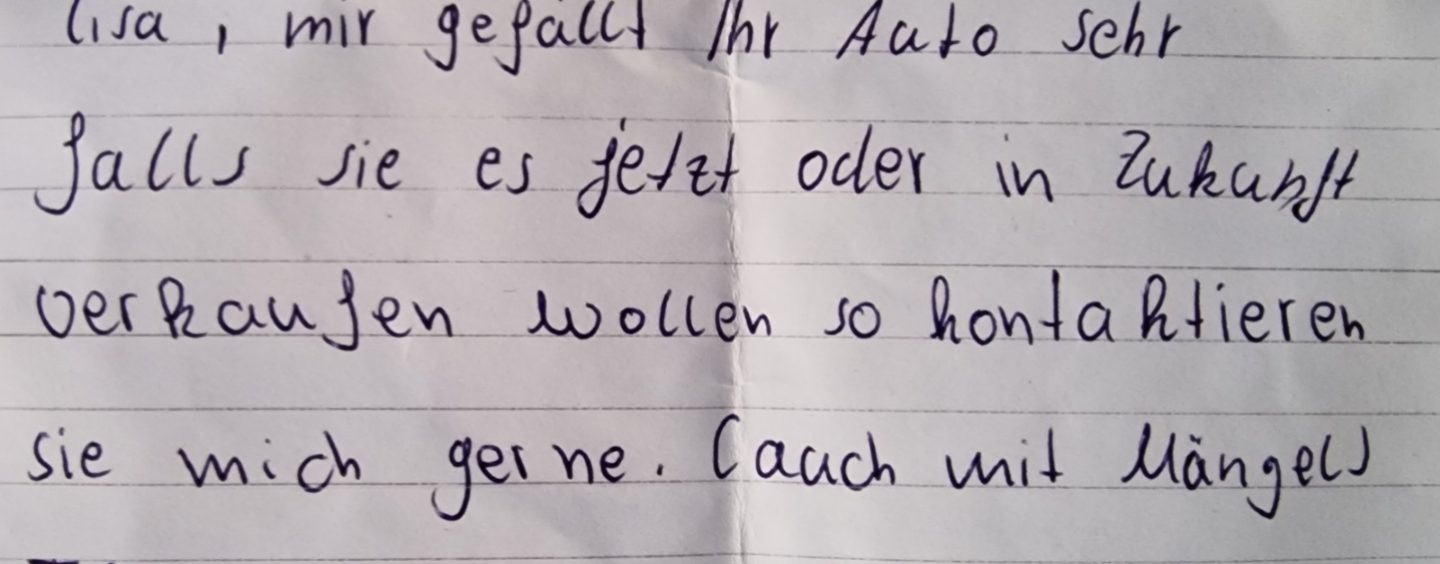 lisa, mir gefällt Ihr Auto sehr
falls sie es jetzt oder in Zukunft
verkaufen wollen so kontaktieren
sie mich gerne. (auch mit Mängel)